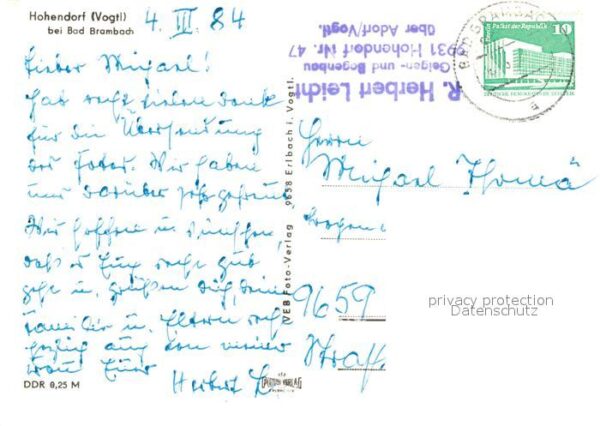 Hohendorf (Vogtl)
bei Bad Brambach
4. III. 84
Lieber Michael!
hab recht vielen Dank
für die Übersendung
der Fotos. Wir haben
uns darüber sehr gefreut,
Wir hoffen u. wünschen,
daß es Euch recht gut
geht u. grüßen Dich, Deine
Familie u. Eltern recht
herzig auch von meiner
Frau Euer
Herbert L.
DDR 0,25 M
VEB Foto-Verlag 9658 Erlbach i. Vogtl.
R. Herbert Leicht
Geigen- und Bogenbau
9931 Hohendorf Nr. 47
über Adorf/Vogtl.
BAD BRAMBACH
a
Berlin Palast der Republik
10
DEUTSCHE DEMOKRATISCHE REPUBLIK
Herrn
Michael Thomä
9659
Straße
privacy protection
Datenschutz
FOTO-VERLAG